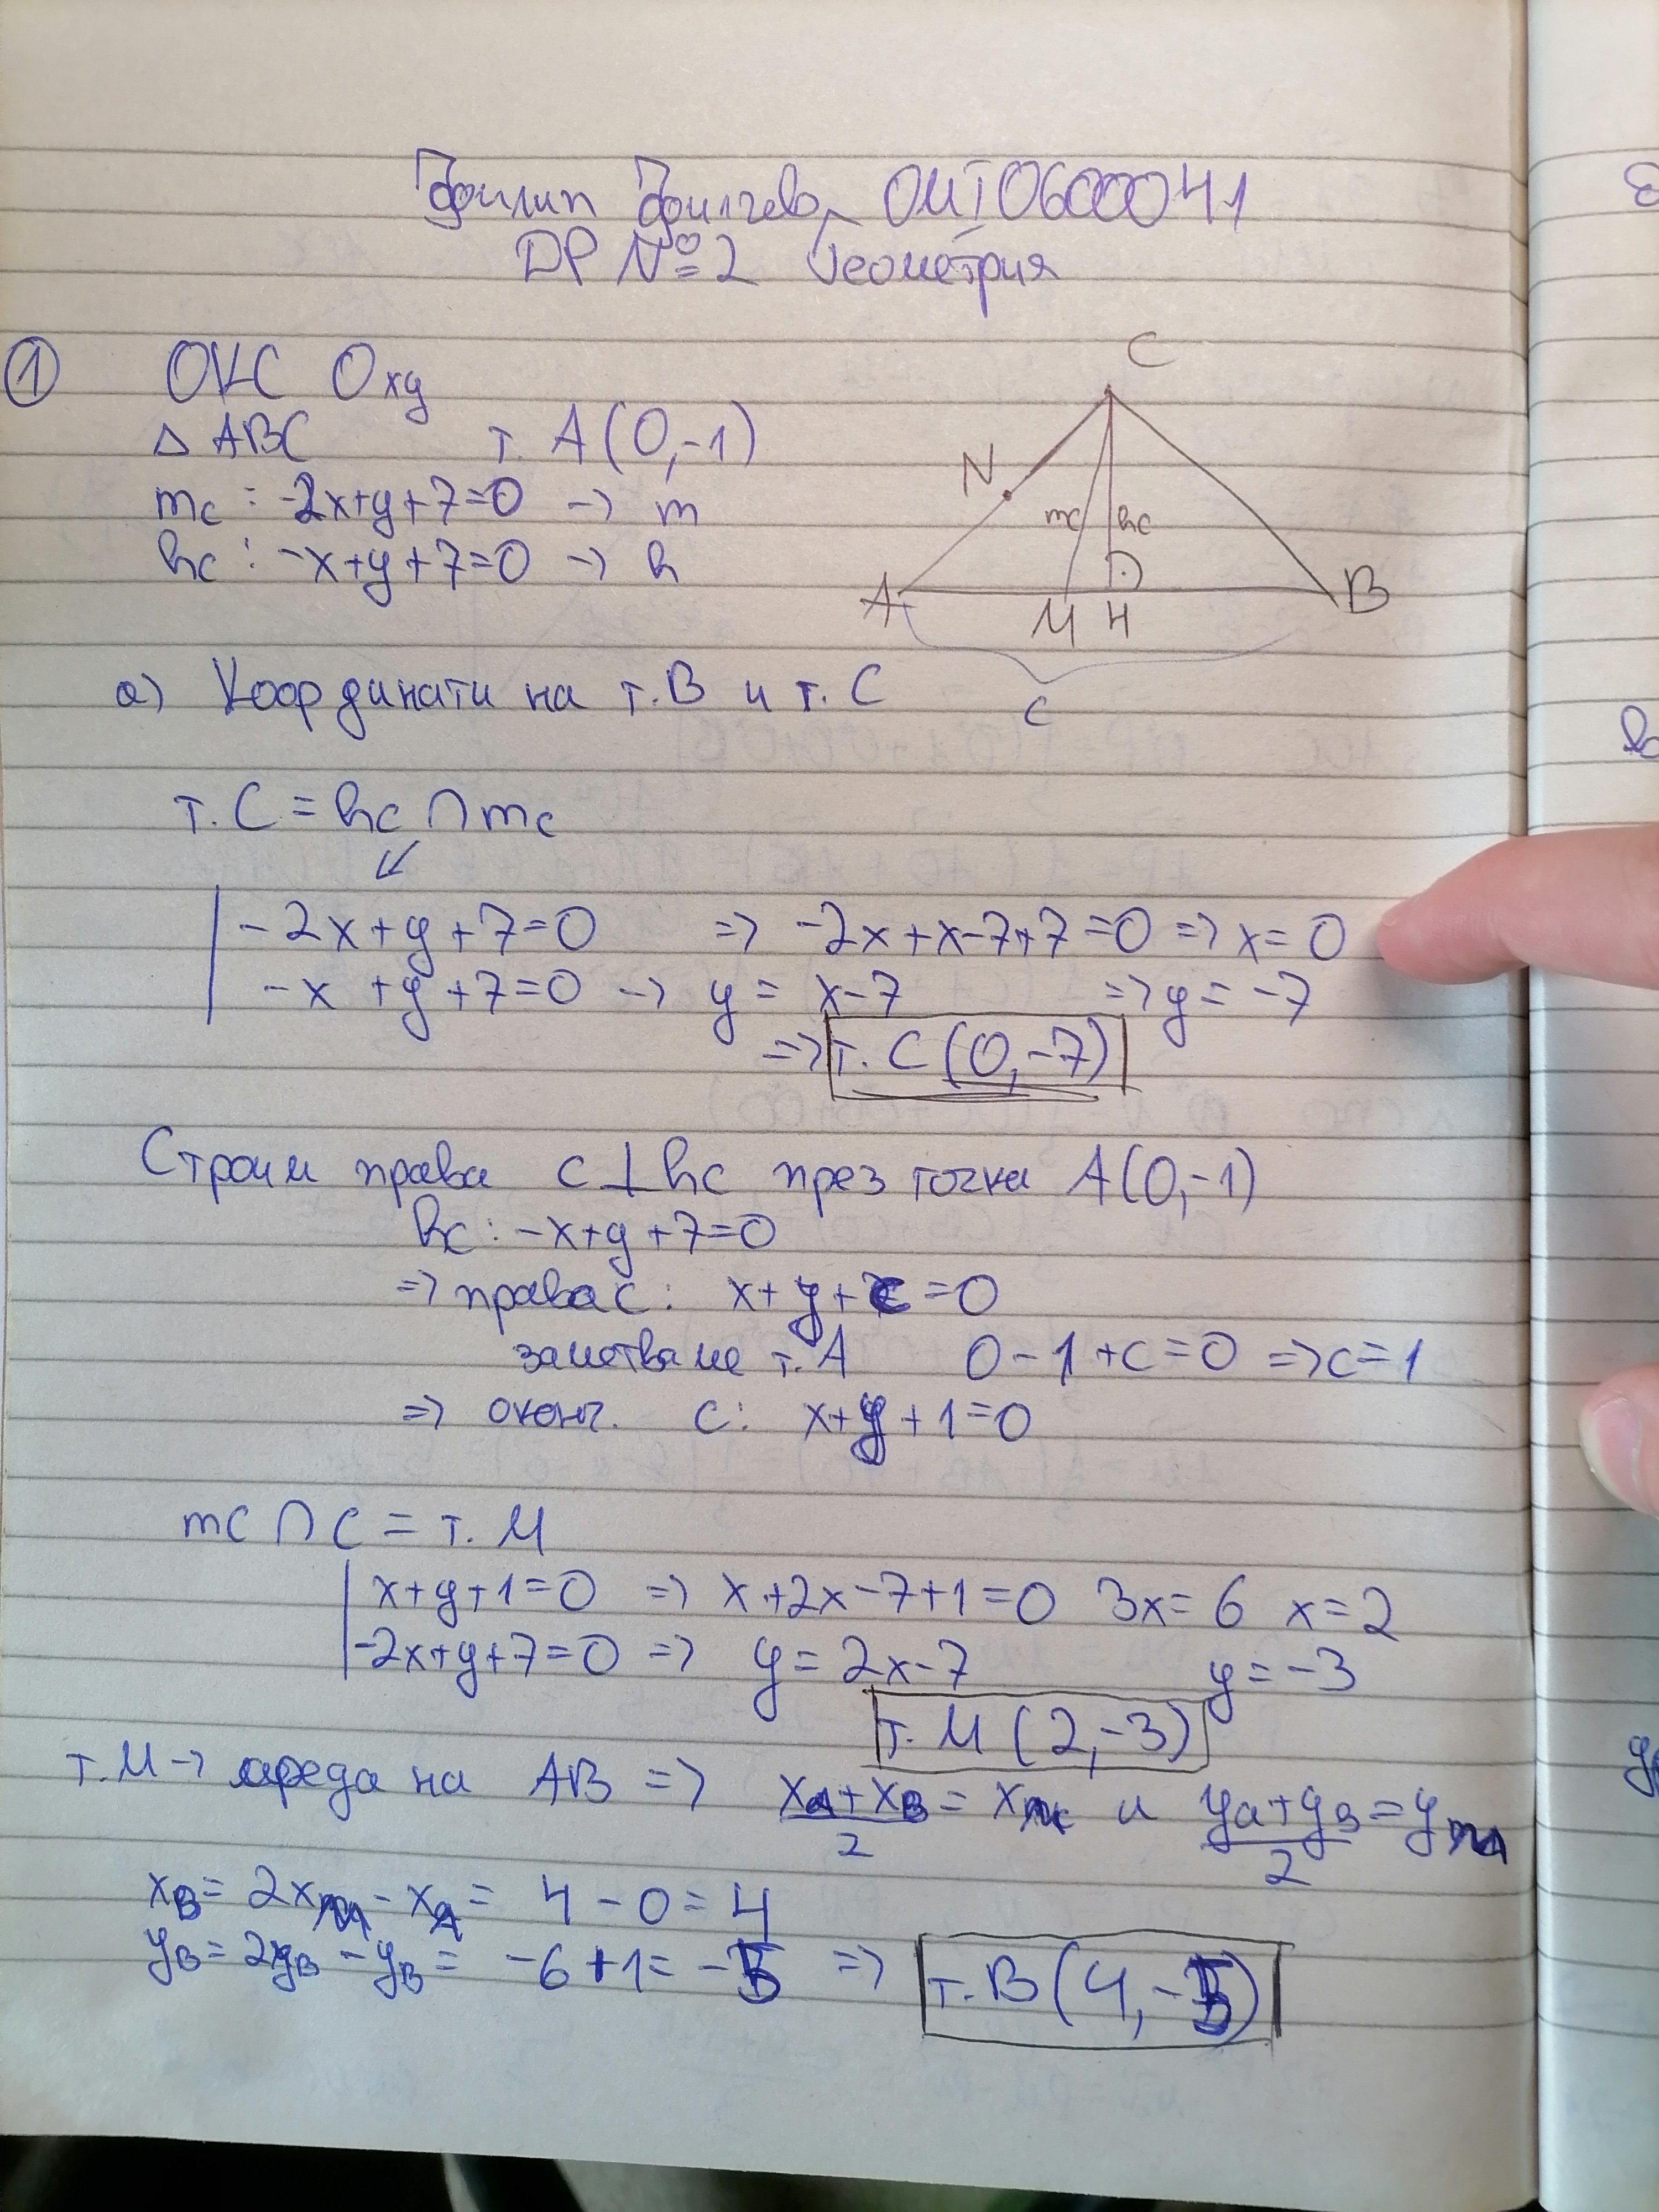 Филип Филчев, 0MI0600041
ДР №2 Геометрия
① ОКС Oxy
△ ABC т. A(0,-1)
mc : -2x+y+7=0 → m
hc : -x+y+7=0 → h
C
N
mc hc
A M H B
c
а) Координати на т. B и т. C
т. C = hc ∩ mc
↙
-2x+y+7=0 => -2x+x-7+7=0 => x=0
-x+y+7=0 → y = x-7 => y = -7
=> т. C(0,-7)
Строим права c ⊥ hc през точка A(0,-1)
hc : -x+y+7=0
=> права c: x+y+c=0
заместваме т. A 0-1+c=0 => c=1
=> оконч. c: x+y+1=0
mc ∩ c = т. M
x+y+1=0 => x+2x-7+1=0 3x=6 x=2
-2x+y+7=0 => y = 2x-7 y = -3
т. M (2,-3)
т. M → среда на AB => (xA+xB)/2 = xM и (yA+yB)/2 = yM
xB = 2xM - xA = 4 - 0 = 4
yB = 2yB - yB = -6+1 = -5 => т. B(4,-5)